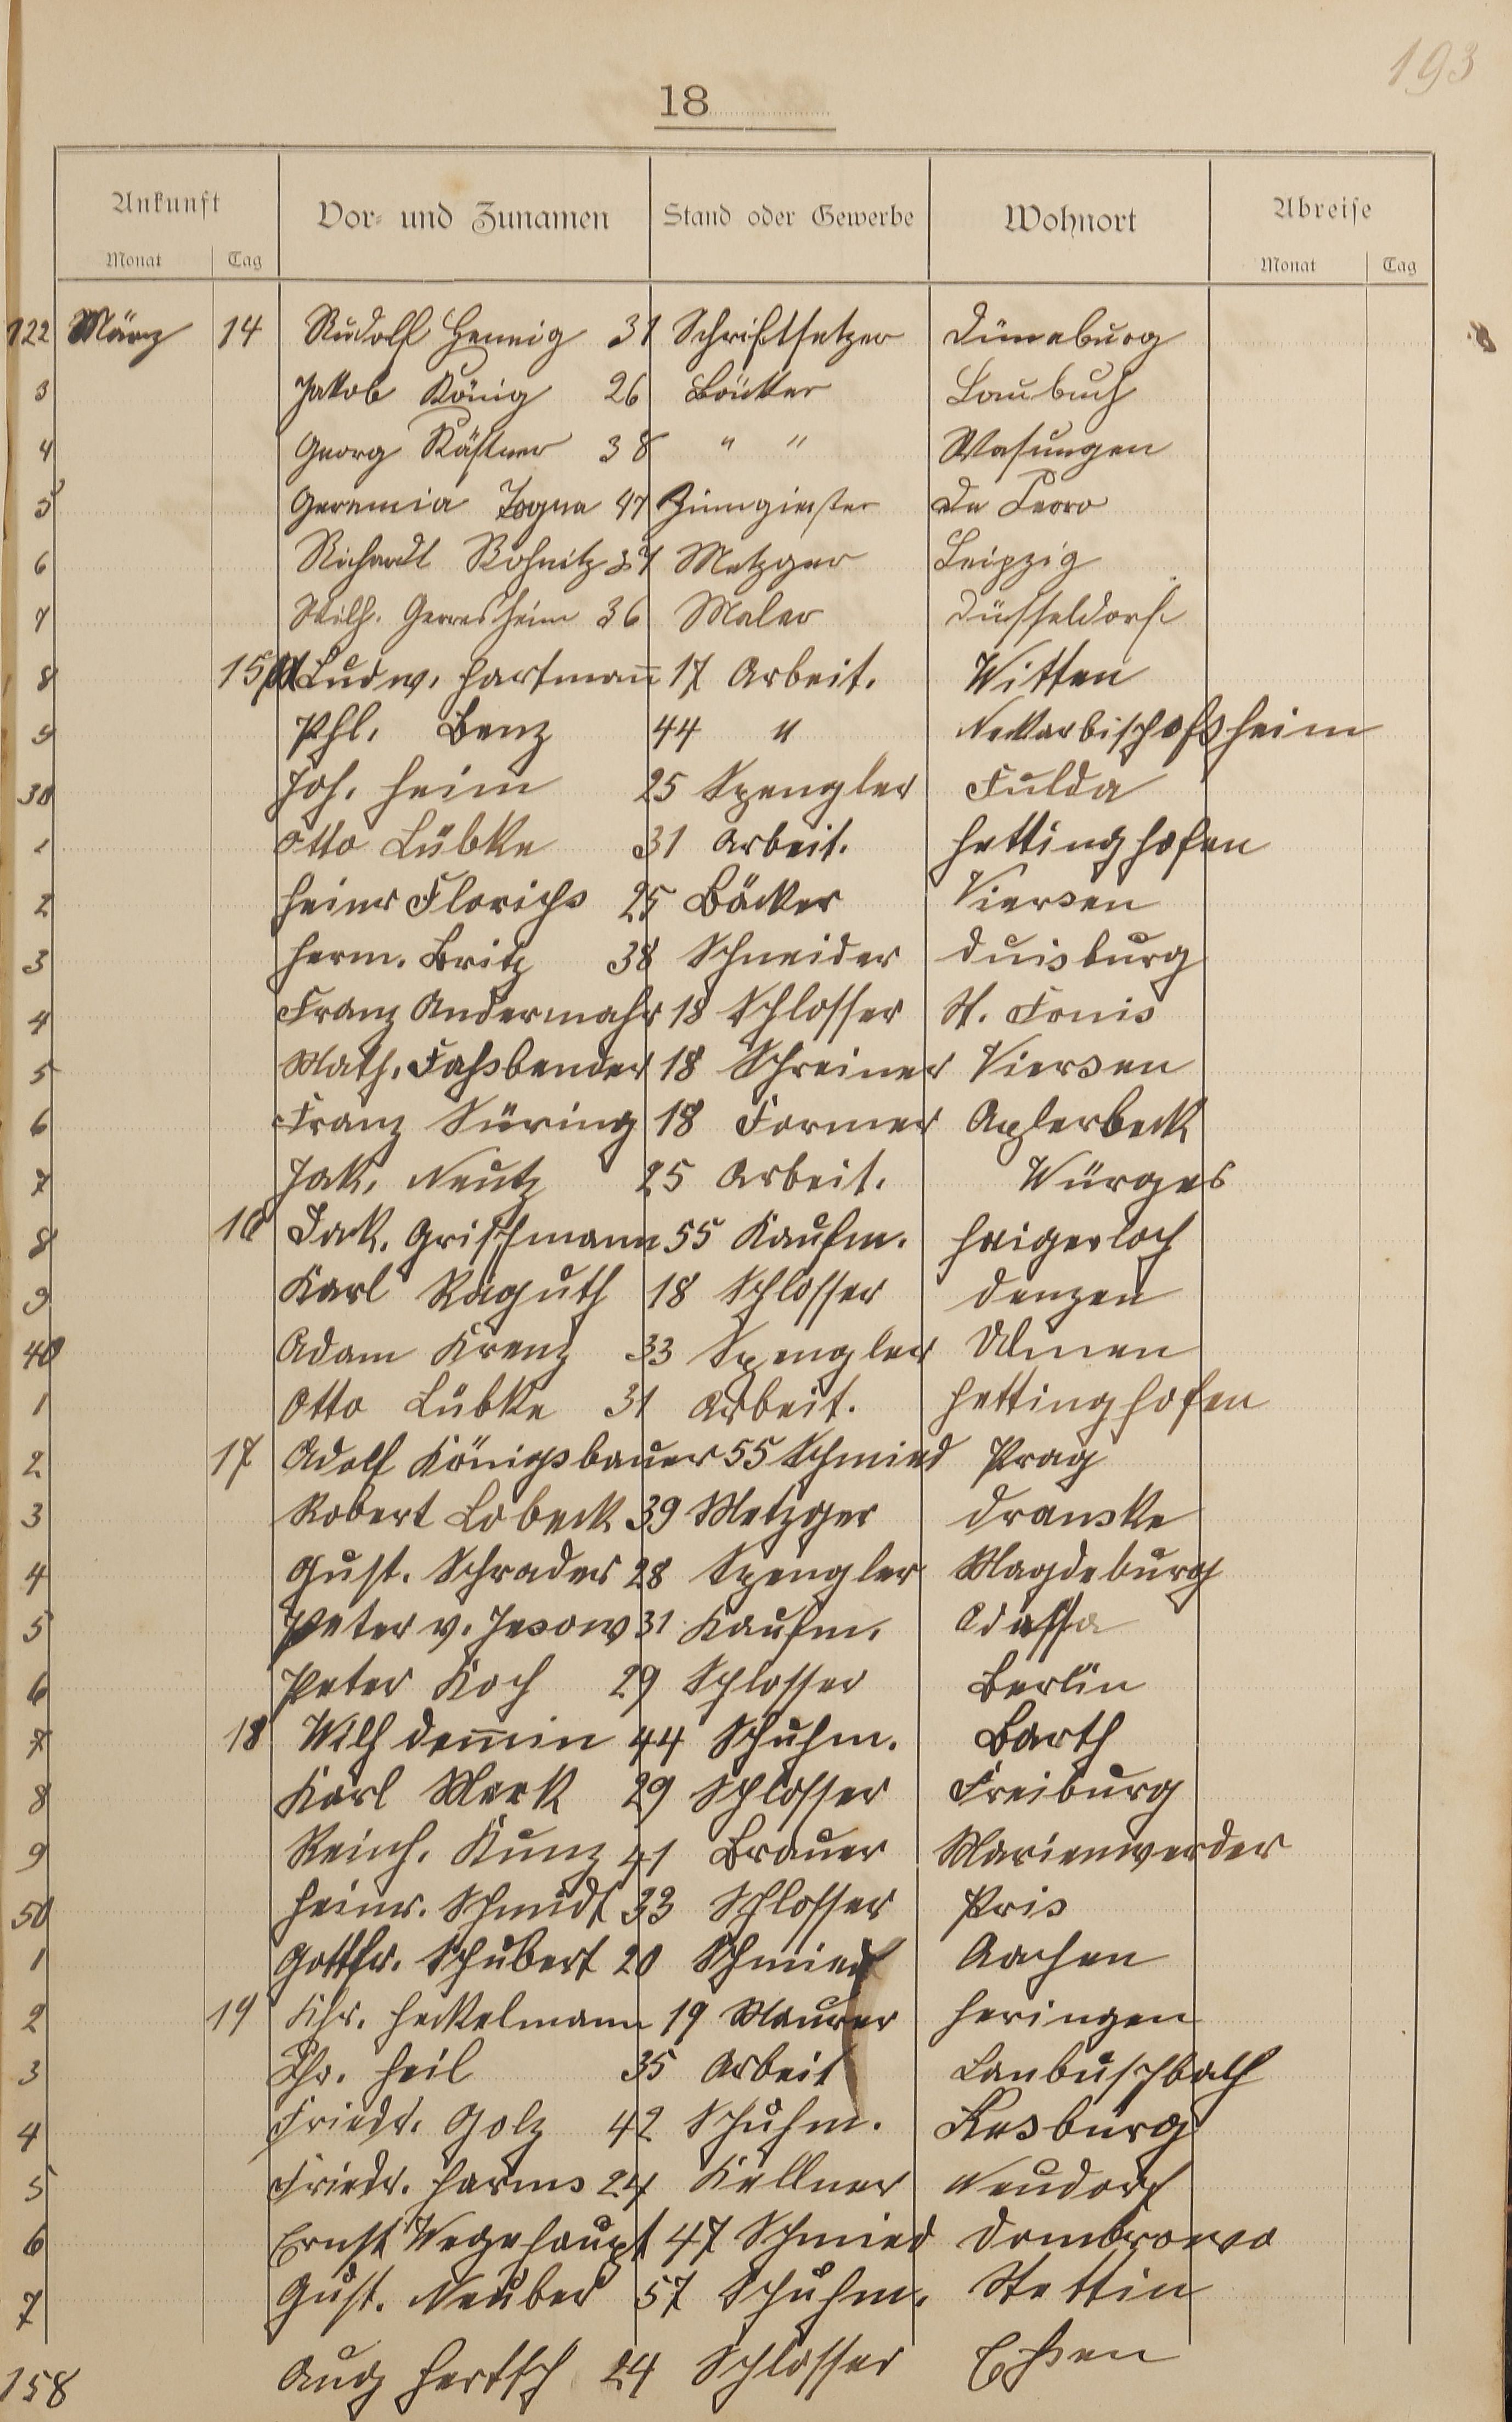 193
18
Ankunft Vor- und Zunamen Stand oder Gewerbe Wohnort Abreise
Monat Tag Monat Tag
122 März 14 Rudolf Hennig 31 Schriftsetzer Lüneburg
3 Jakob König 26 Bäcker Laubuch
4 Georg Kästner 38 " " Wasungen
5 Geremia Zogna 47 Zinngiesser
6 Richardt Bohnitz 37 Metzger Leipzig
7 Wilh. Gerresheim 36 Maler Düsseldorf
8 15 Ludw. Hartmann̄ 17 Arbeit. Witten
9 Phl. Benz 44 " Neckarbischofsheim
30 Joh. Heim 25 Spengler Fulda
1 Otto Lübke 31 Arbeit. Hettinghofen
2 Heinr Florichs 25 Bäcker Viersen
3 Herm. Britz 38 Schneider Duisburg
4 Franz Andermahr 18 Schlosser St. Tonis
5 Math. Fahsbender 18 Schreiner Viersen
6 Franz Süring 18 Former Aplerbeck
7 Jak. Neutz 25 Arbeit. Würges
8 16 Jak. Grischmann 55 Kaufm. Haigerloch
9 Karl Raguth 18 Schlosser Denzen
40 Adam Krenz 33 Spengler Ulmen
1 Otto Lübke 31 Arbeit. Hettinghofen
2 17 Adolf Königsbauer 55 Schmied Prag
3 Robert Lobeck 39 Metzger Dranske
4 Gust. Schrader 28 Spengler Magdeburg
5 Peter v. Jesow 31 Kaufm. Odessa
6 Peter Koch 29 Schlosser Berlin
7 18 Wilh Dem̄in 44 Schuhm. Barth
8 Karl Merk 29 Schlosser Freiburg
9 Reinh. Kunz 41 Brauer Marienwerder
50 Heinr. Schmidt 33 Schlosser Pris
1 Gottfr. Schubert 20 Schmied Aachen
2 19 Chr. Heckelmann 19 Maurer Heringen
3 Chr. Heil 35 Arbeit Laubuschbach
4 Friedr. Golz 42 Schuhm. Rosburg
5 Friedr. Harms 24 Kellner Neudorf
6 Ernst Wegehaupt 47 Schmied Dombrowo
7 Gust. Neuber 57 Schuhm. Stettin
158 Aug Hertsch 24 Schlosser Essen